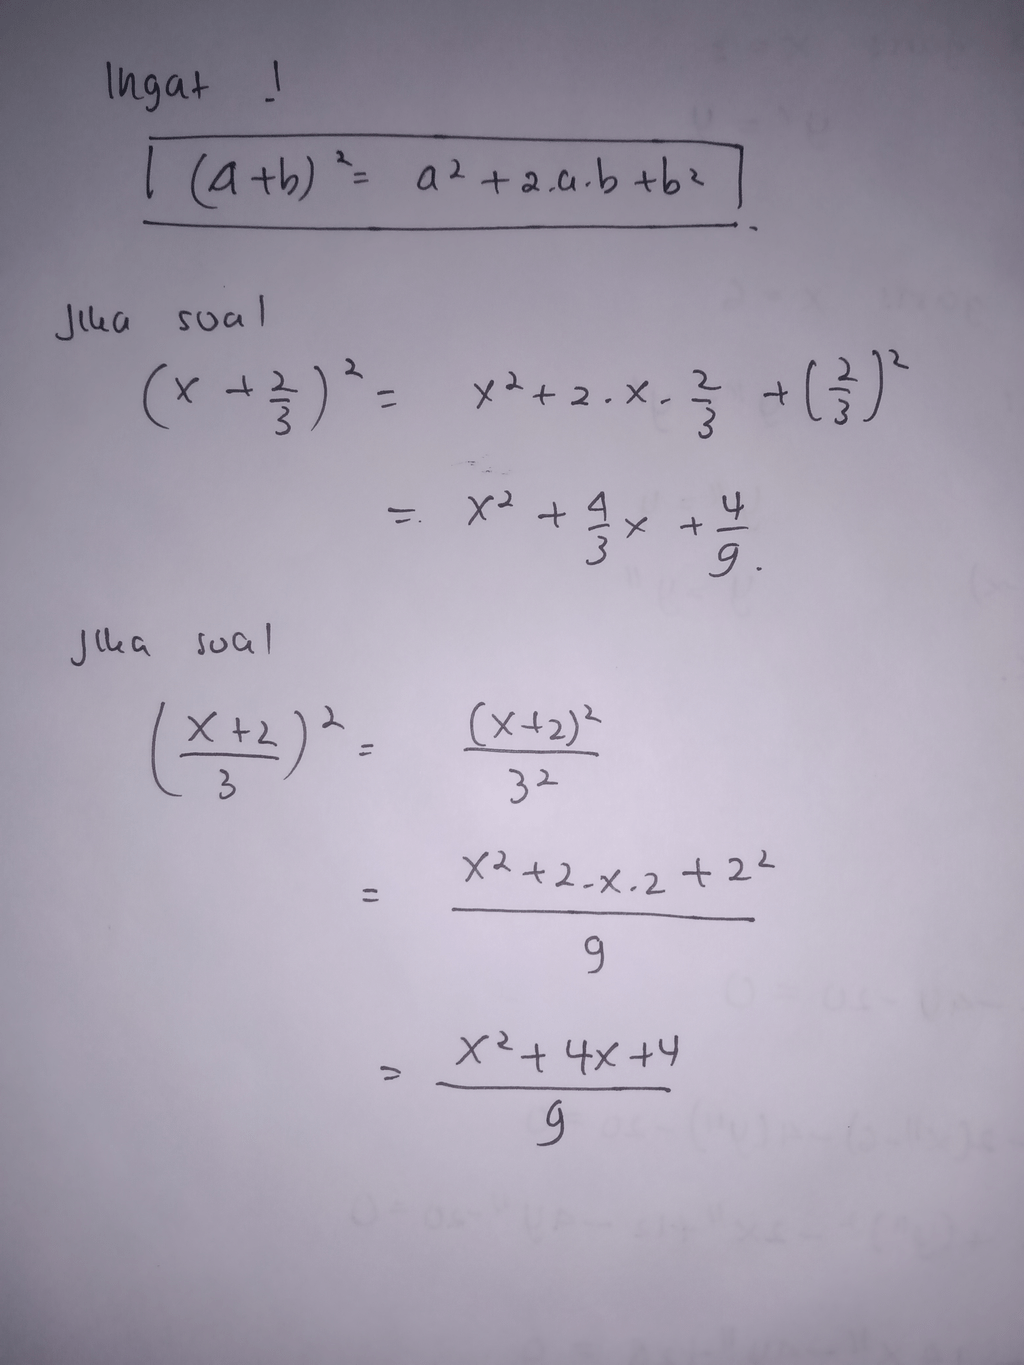 Ingat !
(a+b)² = a² + 2.a.b + b² .
Jika soal
(x + 2/3)² = x² + 2 . x . 2/3 + (2/3)²
= x² + 4/3 x + 4/9 .
Jika soal
((x+2)/3)² = (x+2)²/3²
= (x² + 2 . x . 2 + 2²)/9
= (x² + 4x + 4)/9